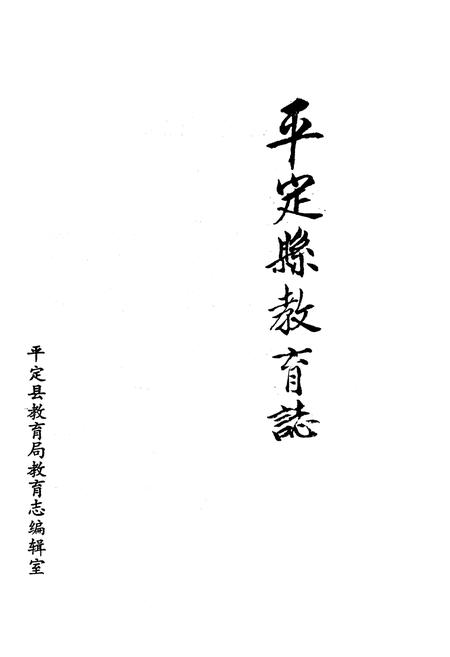 平定縣教育誌
平定县教育局教育志编辑室